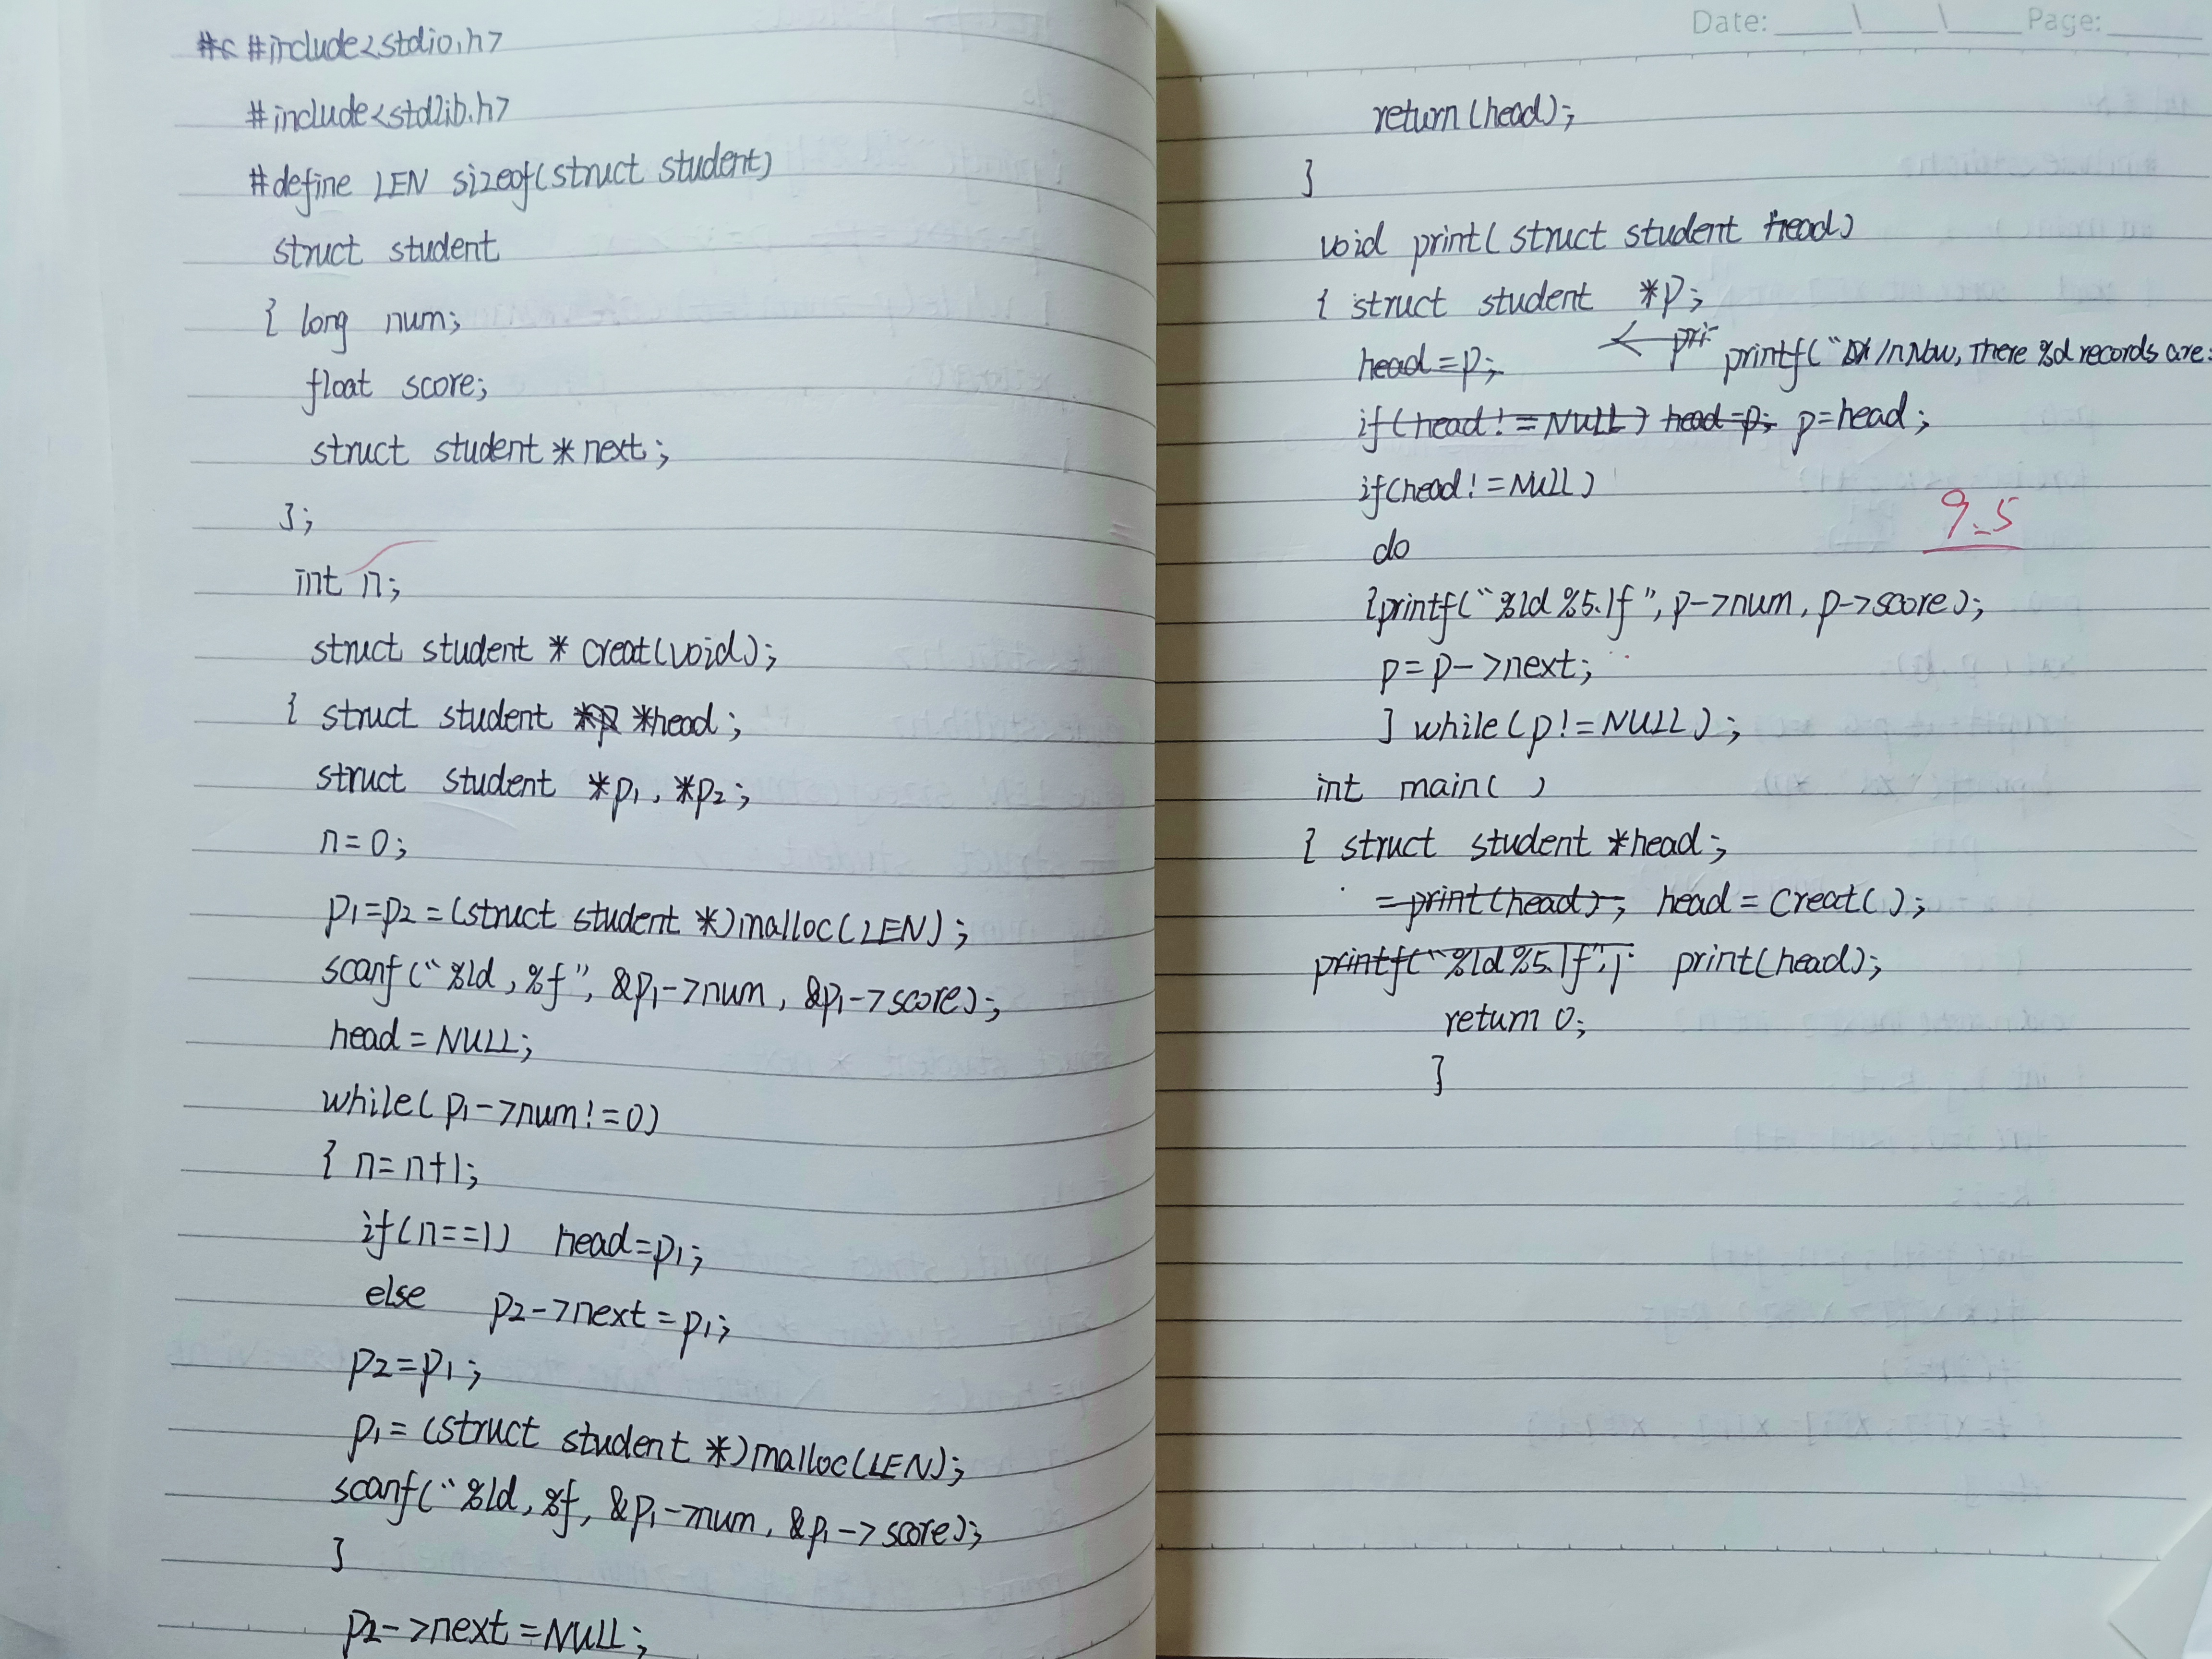 #include<stdio.h>
#include<stdlib.h>
#define LEN sizeof(struct student)
struct student
{ long num;
float score;
struct student * next;
};
int n;
struct student * creat(void);
{ struct student *head;
struct student *p1, *p2;
n=0;
p1=p2=(struct student *)malloc(LEN);
scanf("%ld,%f", &p1->num, &p1->score);
head=NULL;
while(p1->num!=0)
{ n=n+1;
if(n==1) head=p1;
else p2->next=p1;
p2=p1;
p1=(struct student *)malloc(LEN);
scanf("%ld,%f, &p1->num, &p1->score);
}
p2->next=NULL;
Date: ____\____\____ Page:_____
return(head);
}
void print(struct student head)
{ struct student *p;
head=p; printf("/nNow, There %d records are:
if(head!=NULL) head=p; p=head;
if(head!=NULL)
9.5
do
{printf("%ld %5.1f", p->num, p->score);
p=p->next;
} while(p!=NULL);
int main( )
{ struct student *head;
=print(head); head=creat();
printf("%ld%5.1f", print(head);
return 0;
}